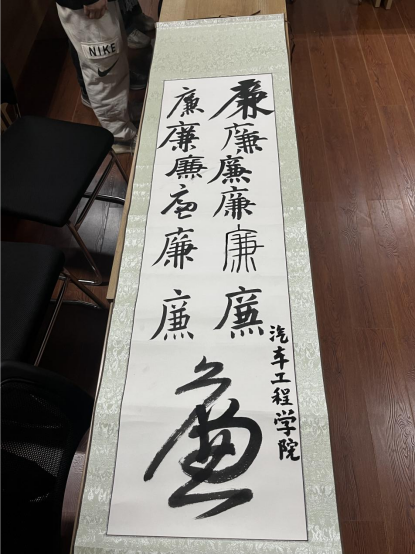 NIKE
廉廉廉廉廉廉
廉廉廉廉廉廉
廉
汽车工程学院